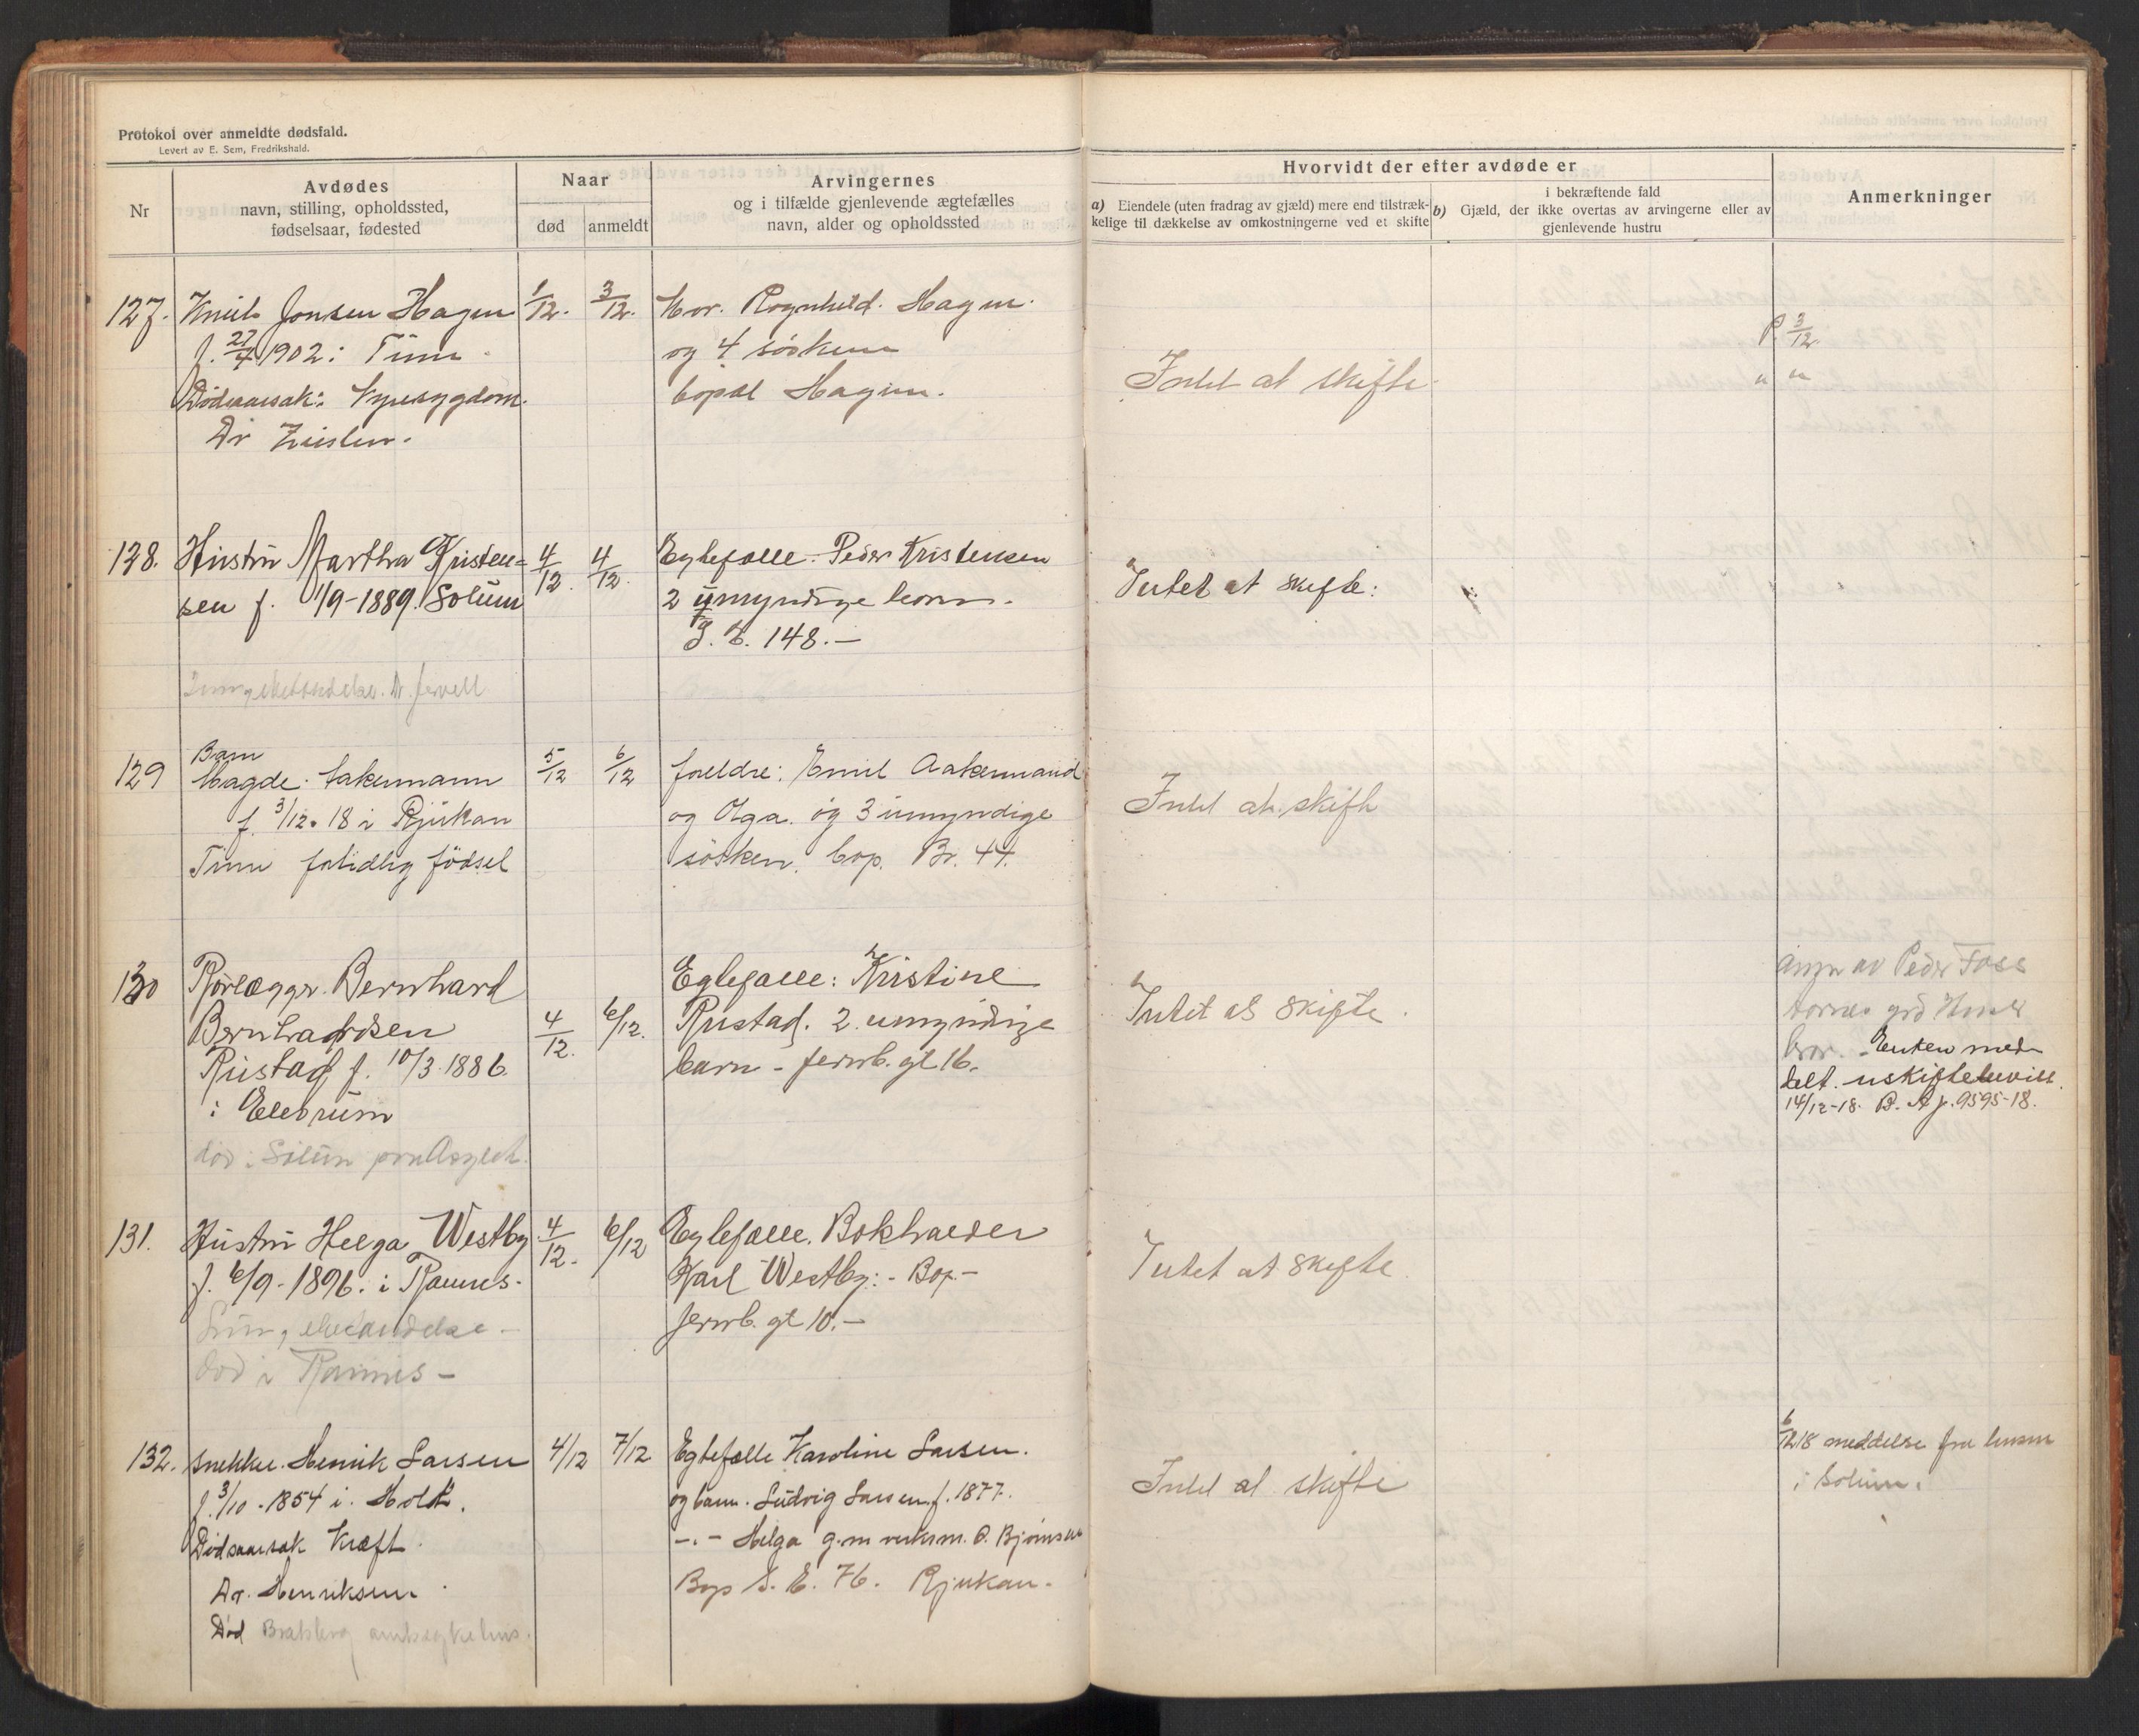 Protokol over anmeldte dødsfald.
Levert av E. Sem, Fredrikshald.
Nr
Avdødes
navn, stilling, opholdssted,
fødselsaar, fødested
Naar
død
anmeldt
Arvingernes
og i tilfælde gjenlevende ægtefælles
navn, alder og opholdssted
Hvorvidt der efter avdøde er
a) Eiendele (uten fradrag av gjæld) mere end tilstræk-
kelige til dækkelse av omkostningerne ved et skifte
b)
i bekræftende fald
Gjæld, der ikke overtas av arvingerne eller av
gjenlevende hustru
Anmerkninger
127. Knut Jonsen Hagen
f. 27/4 1902 i Tinn
Dødsaarsak: Nyresygdom.
Dr
1/12. 3/12.
Mor. Rognhild. Hagen.
og 4 søsken
bopæl Hagen.
Intet at skifte
P. 3/12
" "
128. Hustru Martha Kristen=
sen f. 1/9-1889. Solum
4/12. 4/12.
Egtefælle. Peder Kristensen
2 umyndige barn.
148.-
Intet at skifte:
Lungebetændelse. Dr. Jervell
129 Barn
Magde. Aakermann
f. 3/12. 18 i Rjukan
Tinn fortidlig födsel
5/12 6/12
foreldre: Emil Aakermand
og Olga. og 3 umyndige
søsken. bop. Br. 44.
Intet at skifte
130 Rørlægger. Bernhard
Bernhardsen
Rustad f. 10/3 1886
i Elverum
død i Solum
4/12. 6/12.
Egtefælle: Kristine
Rustad. 2 umyndige
barn - Jernb. gt 16.
Intet at skifte.
av Peder Foss
bror. - Enken med-
delt. uskiftebevill.
14/12-18. B. A j. 9595-18.
131. Hustru Helga Westby
f. 6/9-1896. i Ramnes.
Lungebetændelse -
død i Ramnes -
4/12. 6/12
Egtefælle. Bokholder
Karl Westby: - Bop.-
Jernb. gt 10.-
Intet at skifte.
132. snekker. Henrik Larsen
f. 3/10 - 1854 i. Holt.
Dødsaarsak Kræft.
Dr. Henriksen
Død Bratsberg amtssykehus.
4/12 7/12
Egtefælle Karoline Larsen.
og barn. Ludvig Larsen f. 1877.
-.- Helga g.m verksm. O. Bjørnsen
Bop S. E. 76. Rjukan.
Intet at skifte
6/12 18 meddelse fra lensm
i Solum.